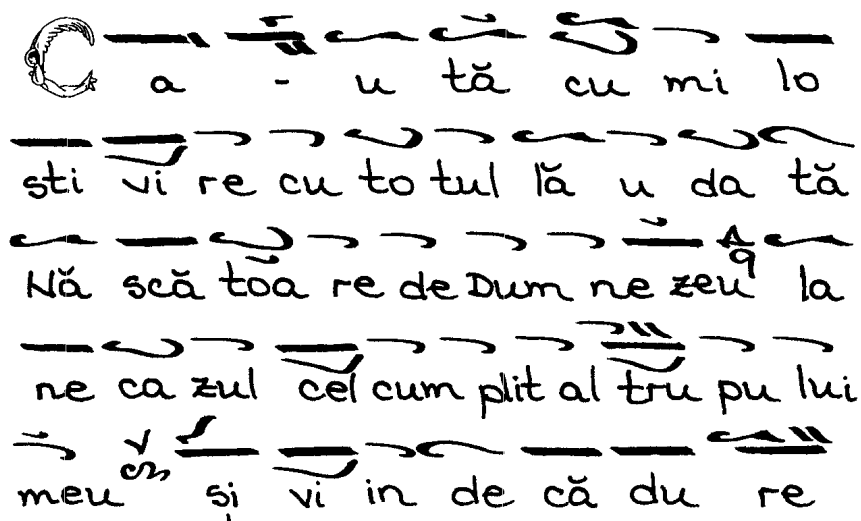 Ca - u tă cu mi lo
sti vi re cu to tul lă u da tă
Nă scă toa re de Dum ne zeu la
ne ca zul cel cum plit al tru pu lui
meu și vi in de că du re